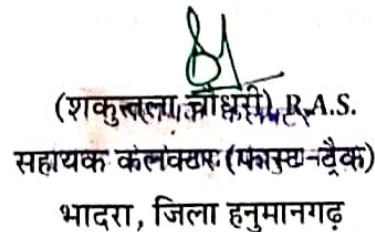 (शकुन्तला चौधरी) R.A.S.
सहायक कलक्टर (फास्ट-ट्रैक)
भादरा, जिला हनुमानगढ़